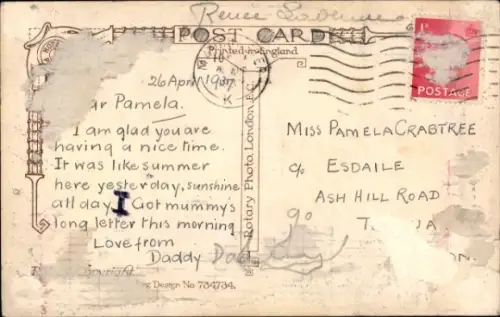 Renee
POST CARD
Printed in England
1D
POSTAGE
26 April 1937
Pamela.
I am glad you are
having a nice time.
It was like summer
here yesterday, sunshine
all day. I Got mummy's
long letter this morning
Love from
Daddy
Rotary Photo, London, E.C.
Design No 734734.
MISS PAMELA CRABTREE
c/o ESDAILE
ASH HILL ROAD